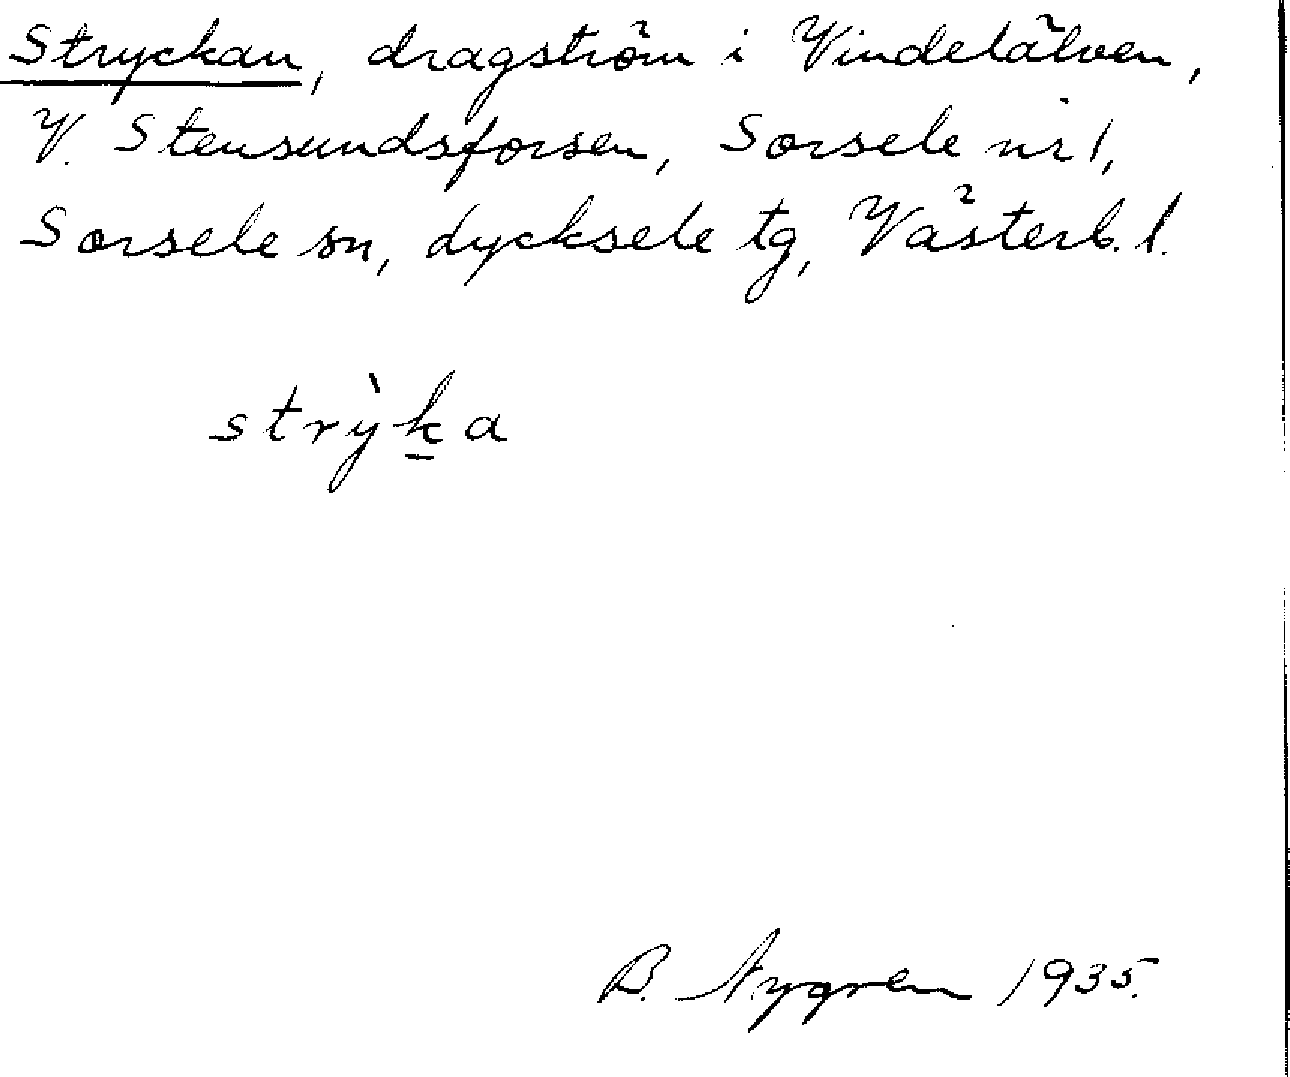 Stryckan, dragström i Vindelälven,
V. Stensundsforsen, Sorsele nr 1,
Sorsele sn, Lycksele tg, Västerb. l.
strỳk̲a
B. Nygren 1935.